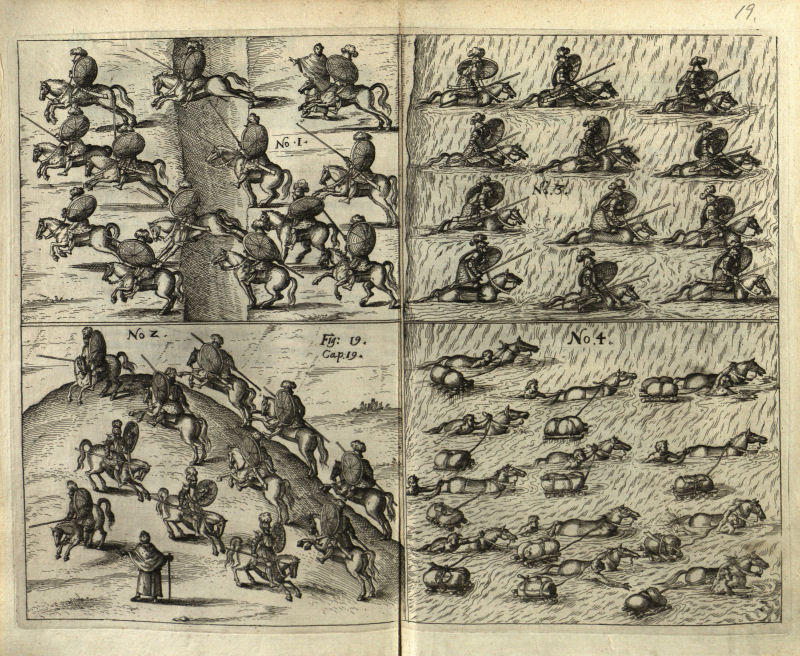 19.
No · 1.
No. 3.
No 2.
Fig: 19.
Cap. 19.
No. 4.